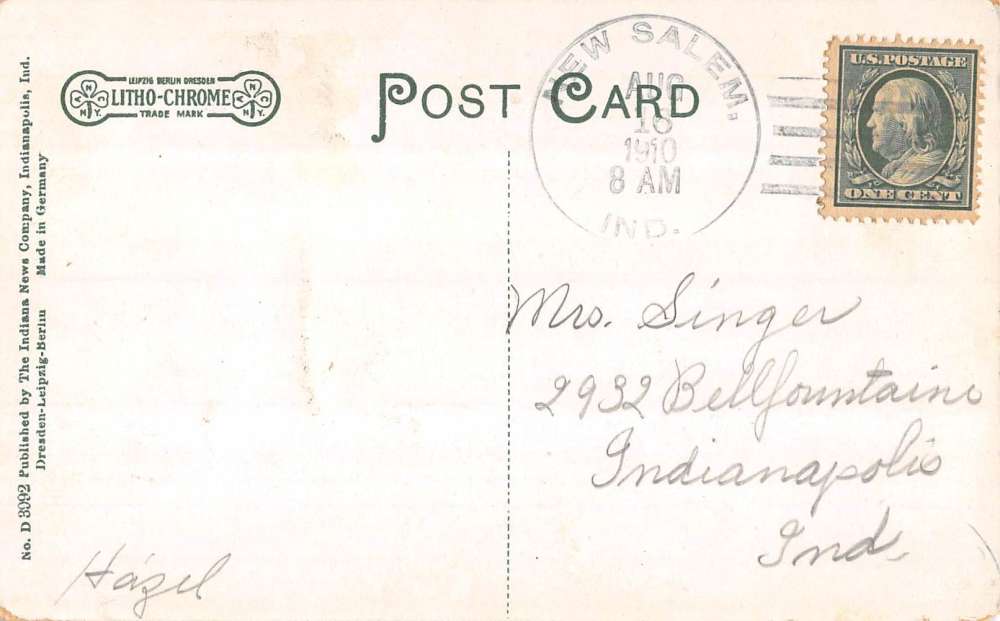 No. D 3092 Published by The Indiana News Company, Indianapolis, Ind.
Dresden-Leipzig-Berlin Made in Germany
LEIPZIG BERLIN DRESDEN
LITHO-CHROME
TRADE MARK
N.Y.
POST CARD
NEW SALEM,
AUG
16
1910
8 AM
IND.
U.S. POSTAGE
ONE CENT
Mrs. Singer
2932 Bellfountaine
Indianapolis
Ind.
Hazel